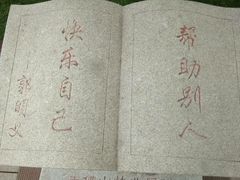 帮助别人
快乐自己
郭明义